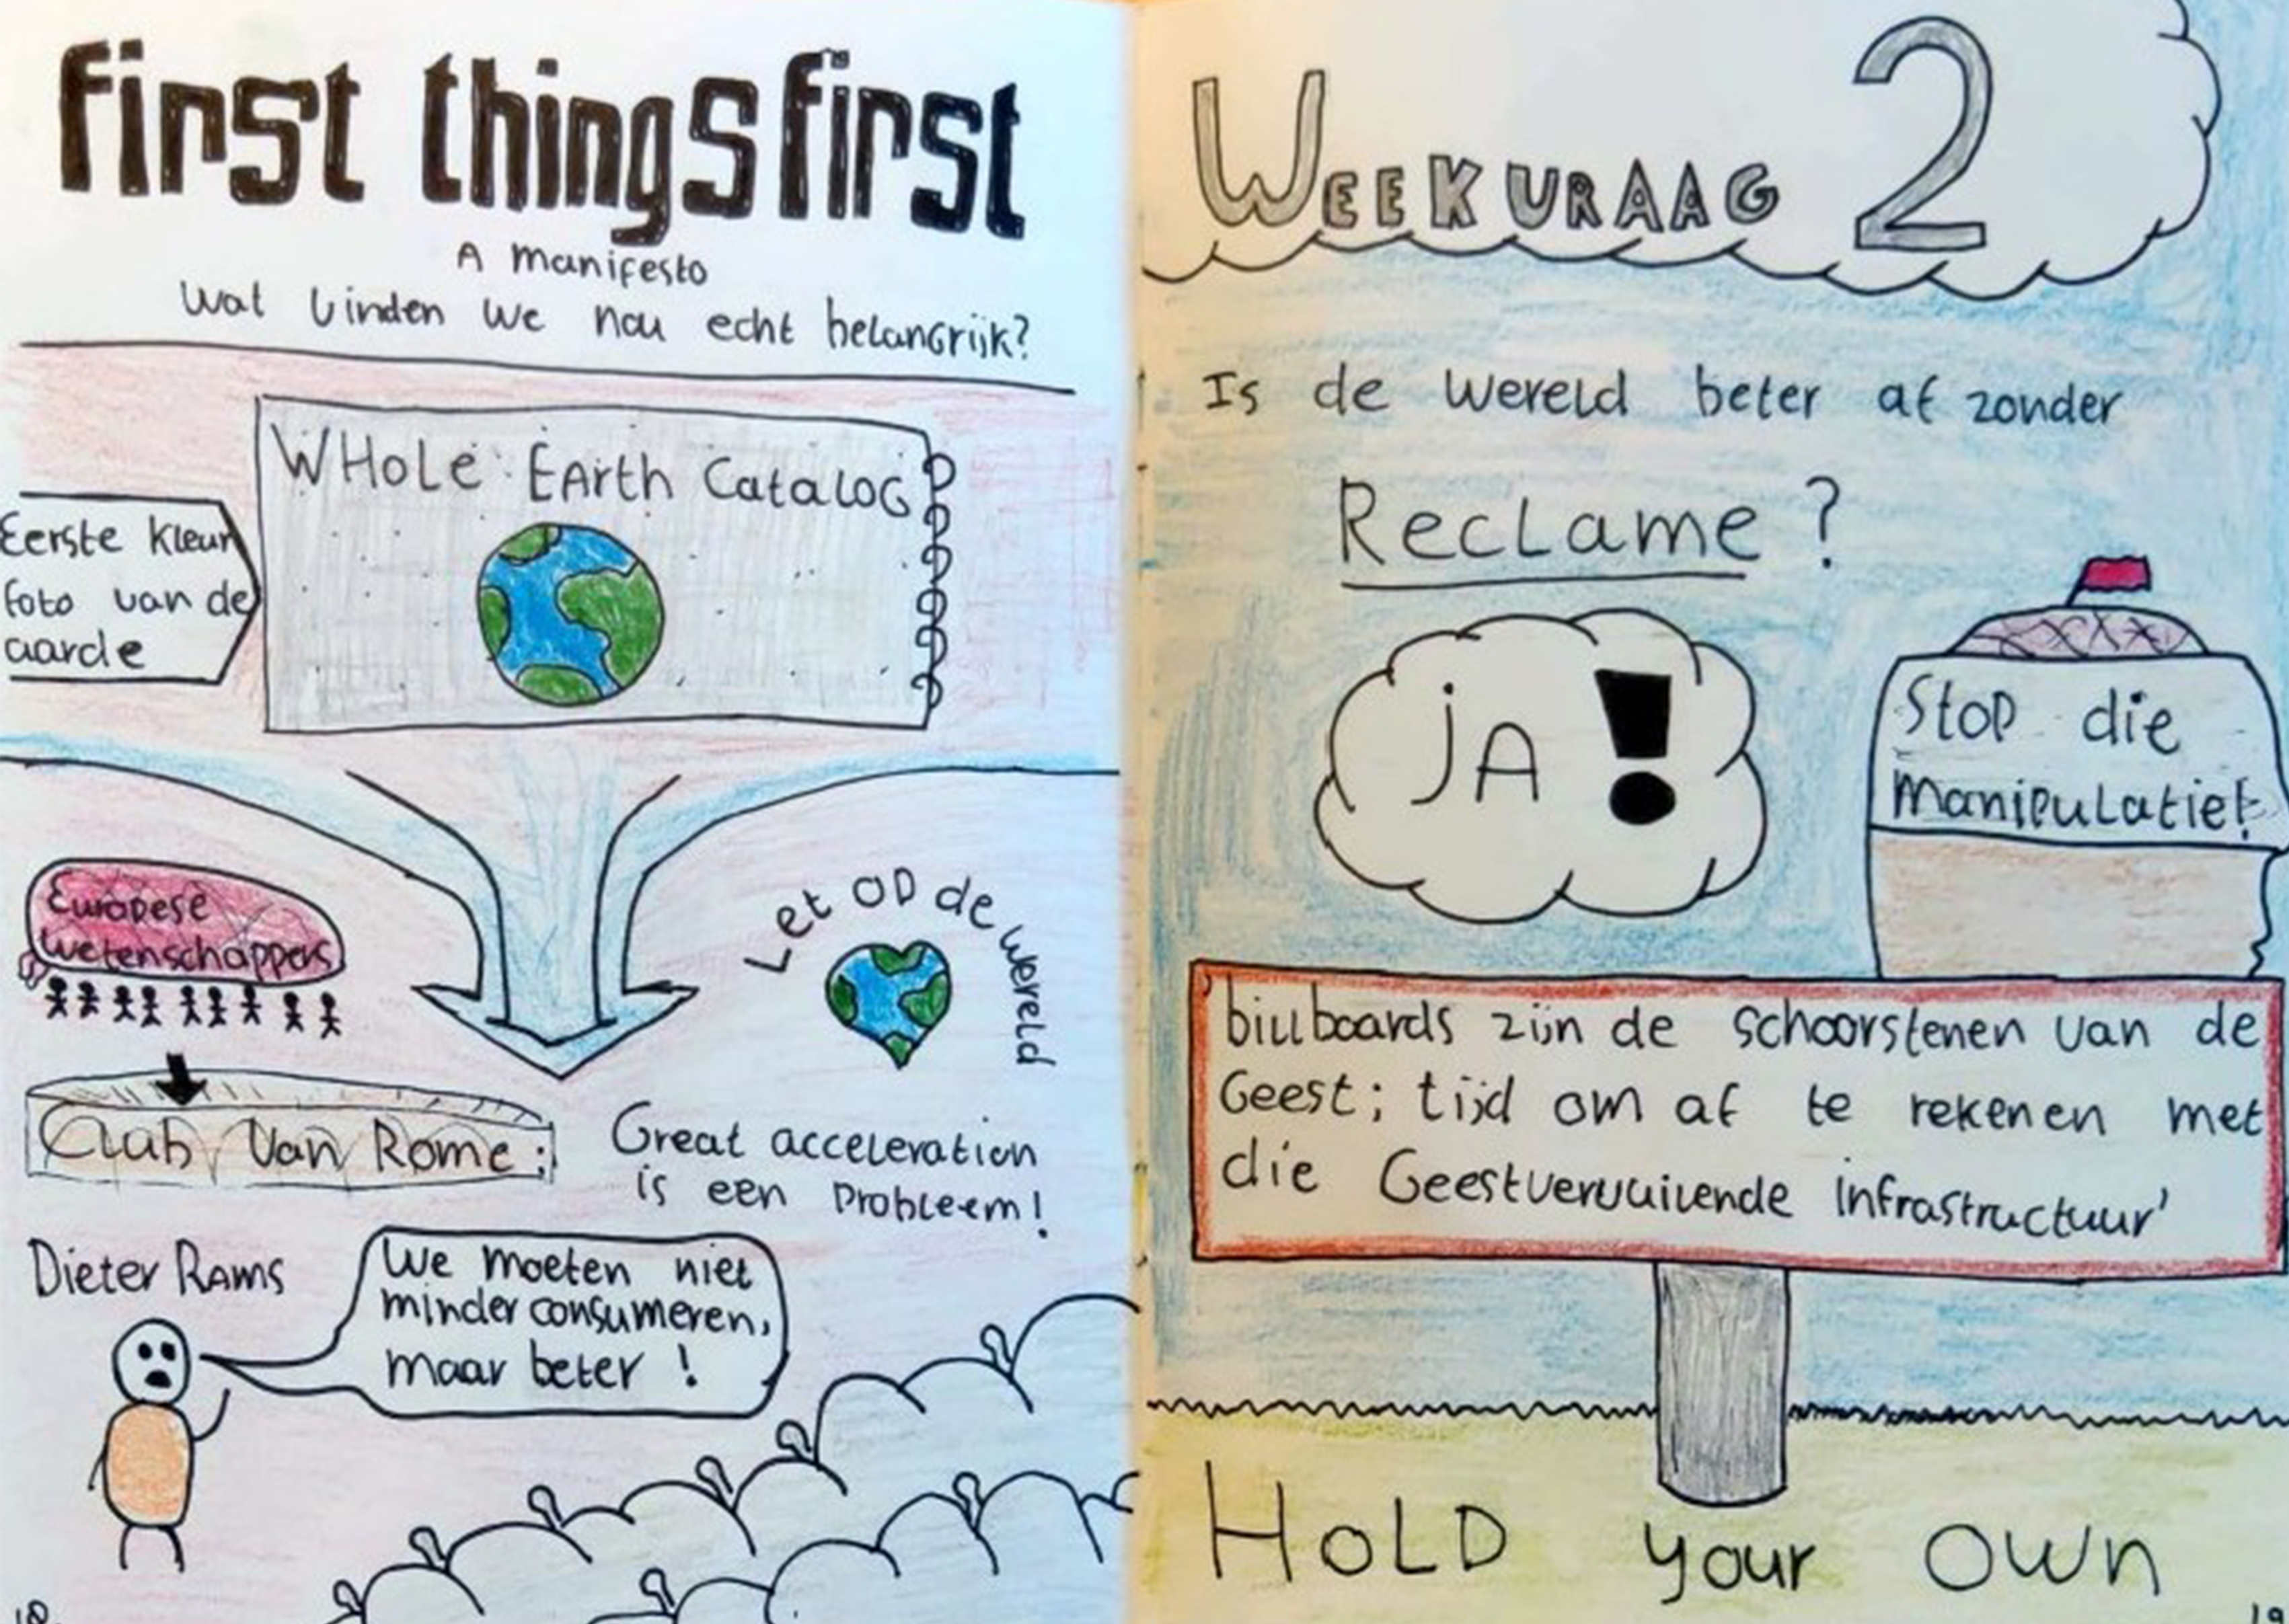 first things first
A manifesto
Wat vinden we nou echt belangrijk?
WHOLE EARTH CATALOG
Eerste kleur
foto van de
aarde
Europese
wetenschappers
Let op de wereld
Club van Rome:
Great acceleration
is een probleem!
Dieter Rams
We moeten niet
minder consumeren,
maar beter!
18
WEEKVRAAG 2
Is de wereld beter af zonder
Reclame?
JA!
Stop die
manipulatie!
'billboards zijn de schoorstenen van de
Geest; tijd om af te rekenen met
die Geestvervuilende infrastructuur'
HOLD your own
19